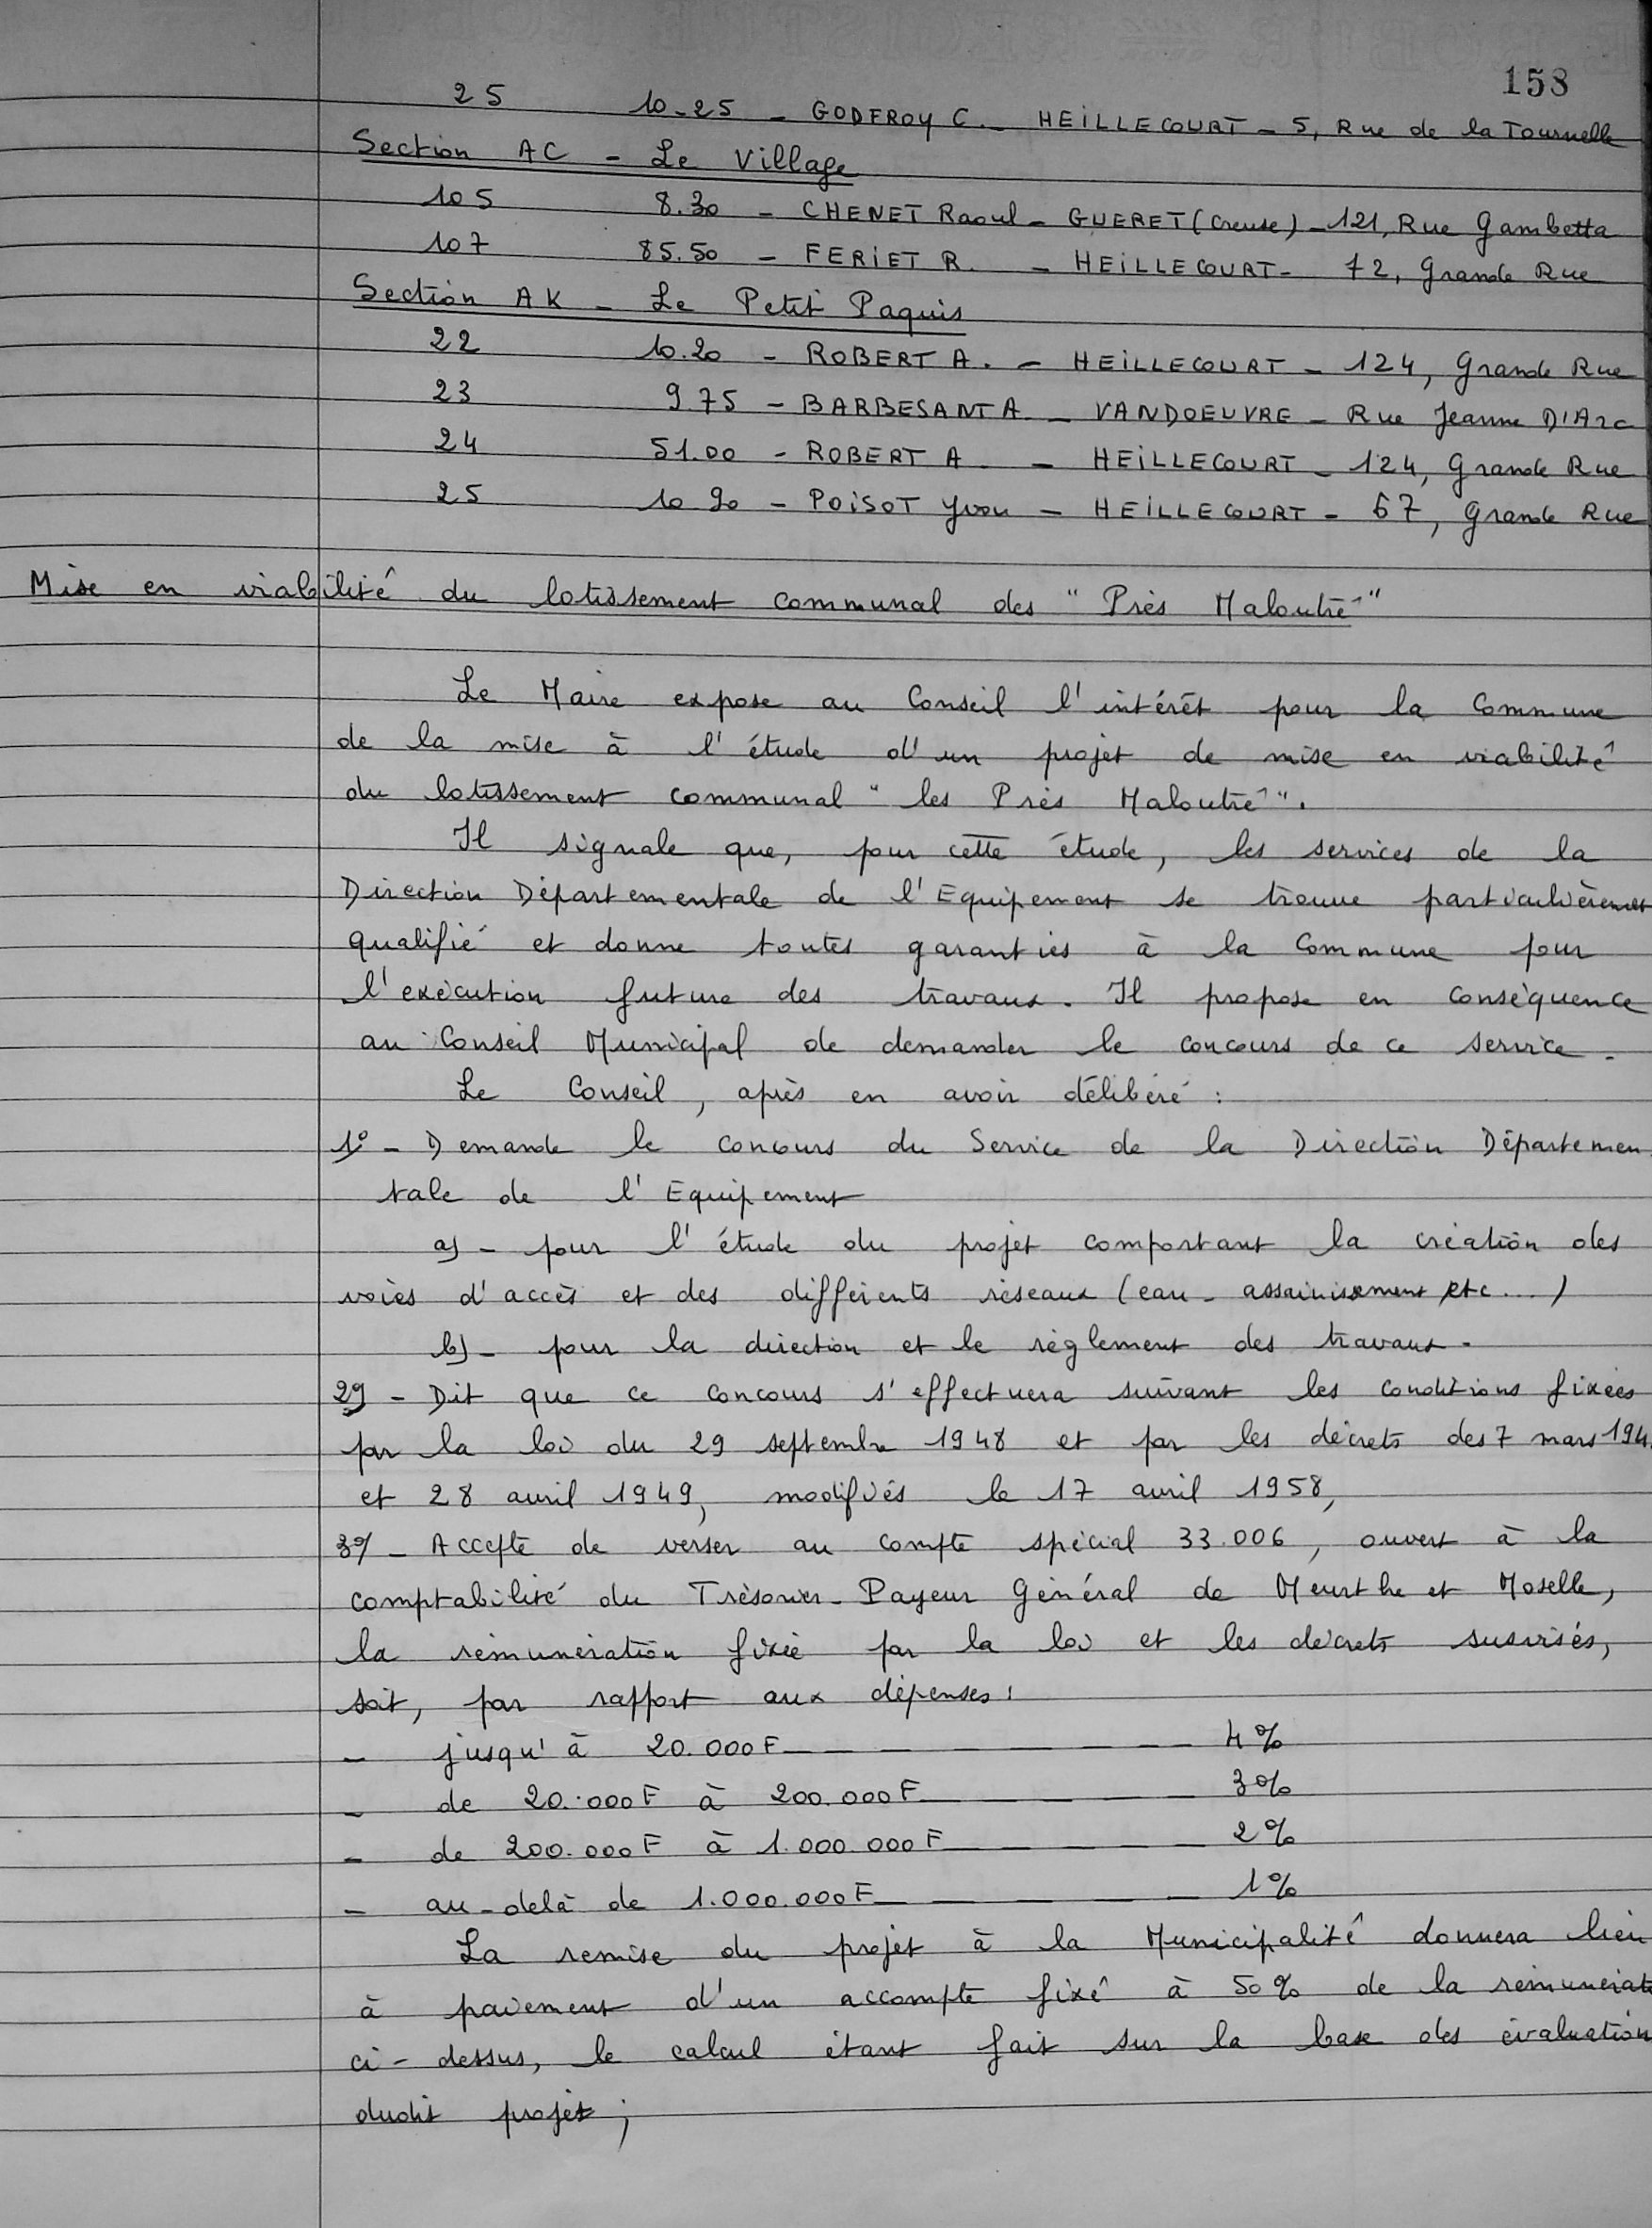 158
25 10-25 - GODFROY C. - HEILLECOURT - 5, Rue de la Tournelle
Section AC - Le Village
105 8.30 - CHENET Raoul - GUERET (Creuse) - 121, Rue Gambetta
107 85.50 - FERIET R. - HEILLECOURT - 72, Grande Rue
Section AK - Le Petit Paquis
22 10.20 - ROBERT A. - HEILLECOURT - 124, Grande Rue
23 9.75 - BARBESANT A. - VANDOEUVRE - Rue Jeanne D'Arc
24 51.00 - ROBERT A. - HEILLECOURT - 124, Grande Rue
25 10.20 - POISOT Yvon - HEILLECOURT - 67, Grande Rue
Mise en viabilité du lotissement communal des "Près Maloutré"
Le Maire expose au Conseil l'intérêt pour la Commune
de la mise à l'étude d'un projet de mise en viabilité
du lotissement communal "les Près Maloutré".
Il signale que, pour cette étude, les services de la
Direction Départementale de l'Equipement se trouve particulièrement
qualifié et donne toutes garanties à la Commune pour
l'exécution future des travaux. Il propose en conséquence
au Conseil Municipal de demander le concours de ce service.
Le Conseil, après en avoir délibéré :
1° - Demande le concours du Service de la Direction Départemen
tale de l'Equipement
a) - pour l'étude du projet comportant la création des
voies d'accès et des différents réseaux (eau - assainissement etc...)
b) - pour la direction et le règlement des travaux.
2°) - Dit que ce concours s'effectuera suivant les conditions fixées
par la loi du 29 septembre 1948 et par les décrets des 7 mars 194
et 28 avril 1949, modifiés le 17 avril 1958,
3°/ - Accepte de verser au compte spécial 33.006, ouvert à la
comptabilité du Trésorier-Payeur Général de Meurthe et Moselle,
la rémunération fixée par la loi et les décrets susvisés,
soit, par rapport aux dépenses :
- jusqu'à 20.000 F - - - - 4%
- de 20.000 F à 200.000 F - - - - 3%
- de 200.000 F à 1.000.000 F - - - - 2%
- au-delà de 1.000.000 F - - - - 1%
La remise du projet à la Municipalité donnera lieu
à paiement d'un accompte fixé à 50% de la rémunérat
ci-dessus, le calcul étant fait sur la base des évaluation
dudit projet ;